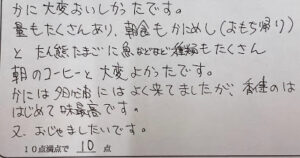 かに大変おいしかったです。
量もたくさんあり、朝食もかにめし(おもち帰り)
と たまごに魚などなど もたくさん
朝のコーヒーと大変よかったです。
かには にはよく来てましたが、香住のは
はじめて味最高です。
又、おじゃましたいです。
10点満点で 10 点